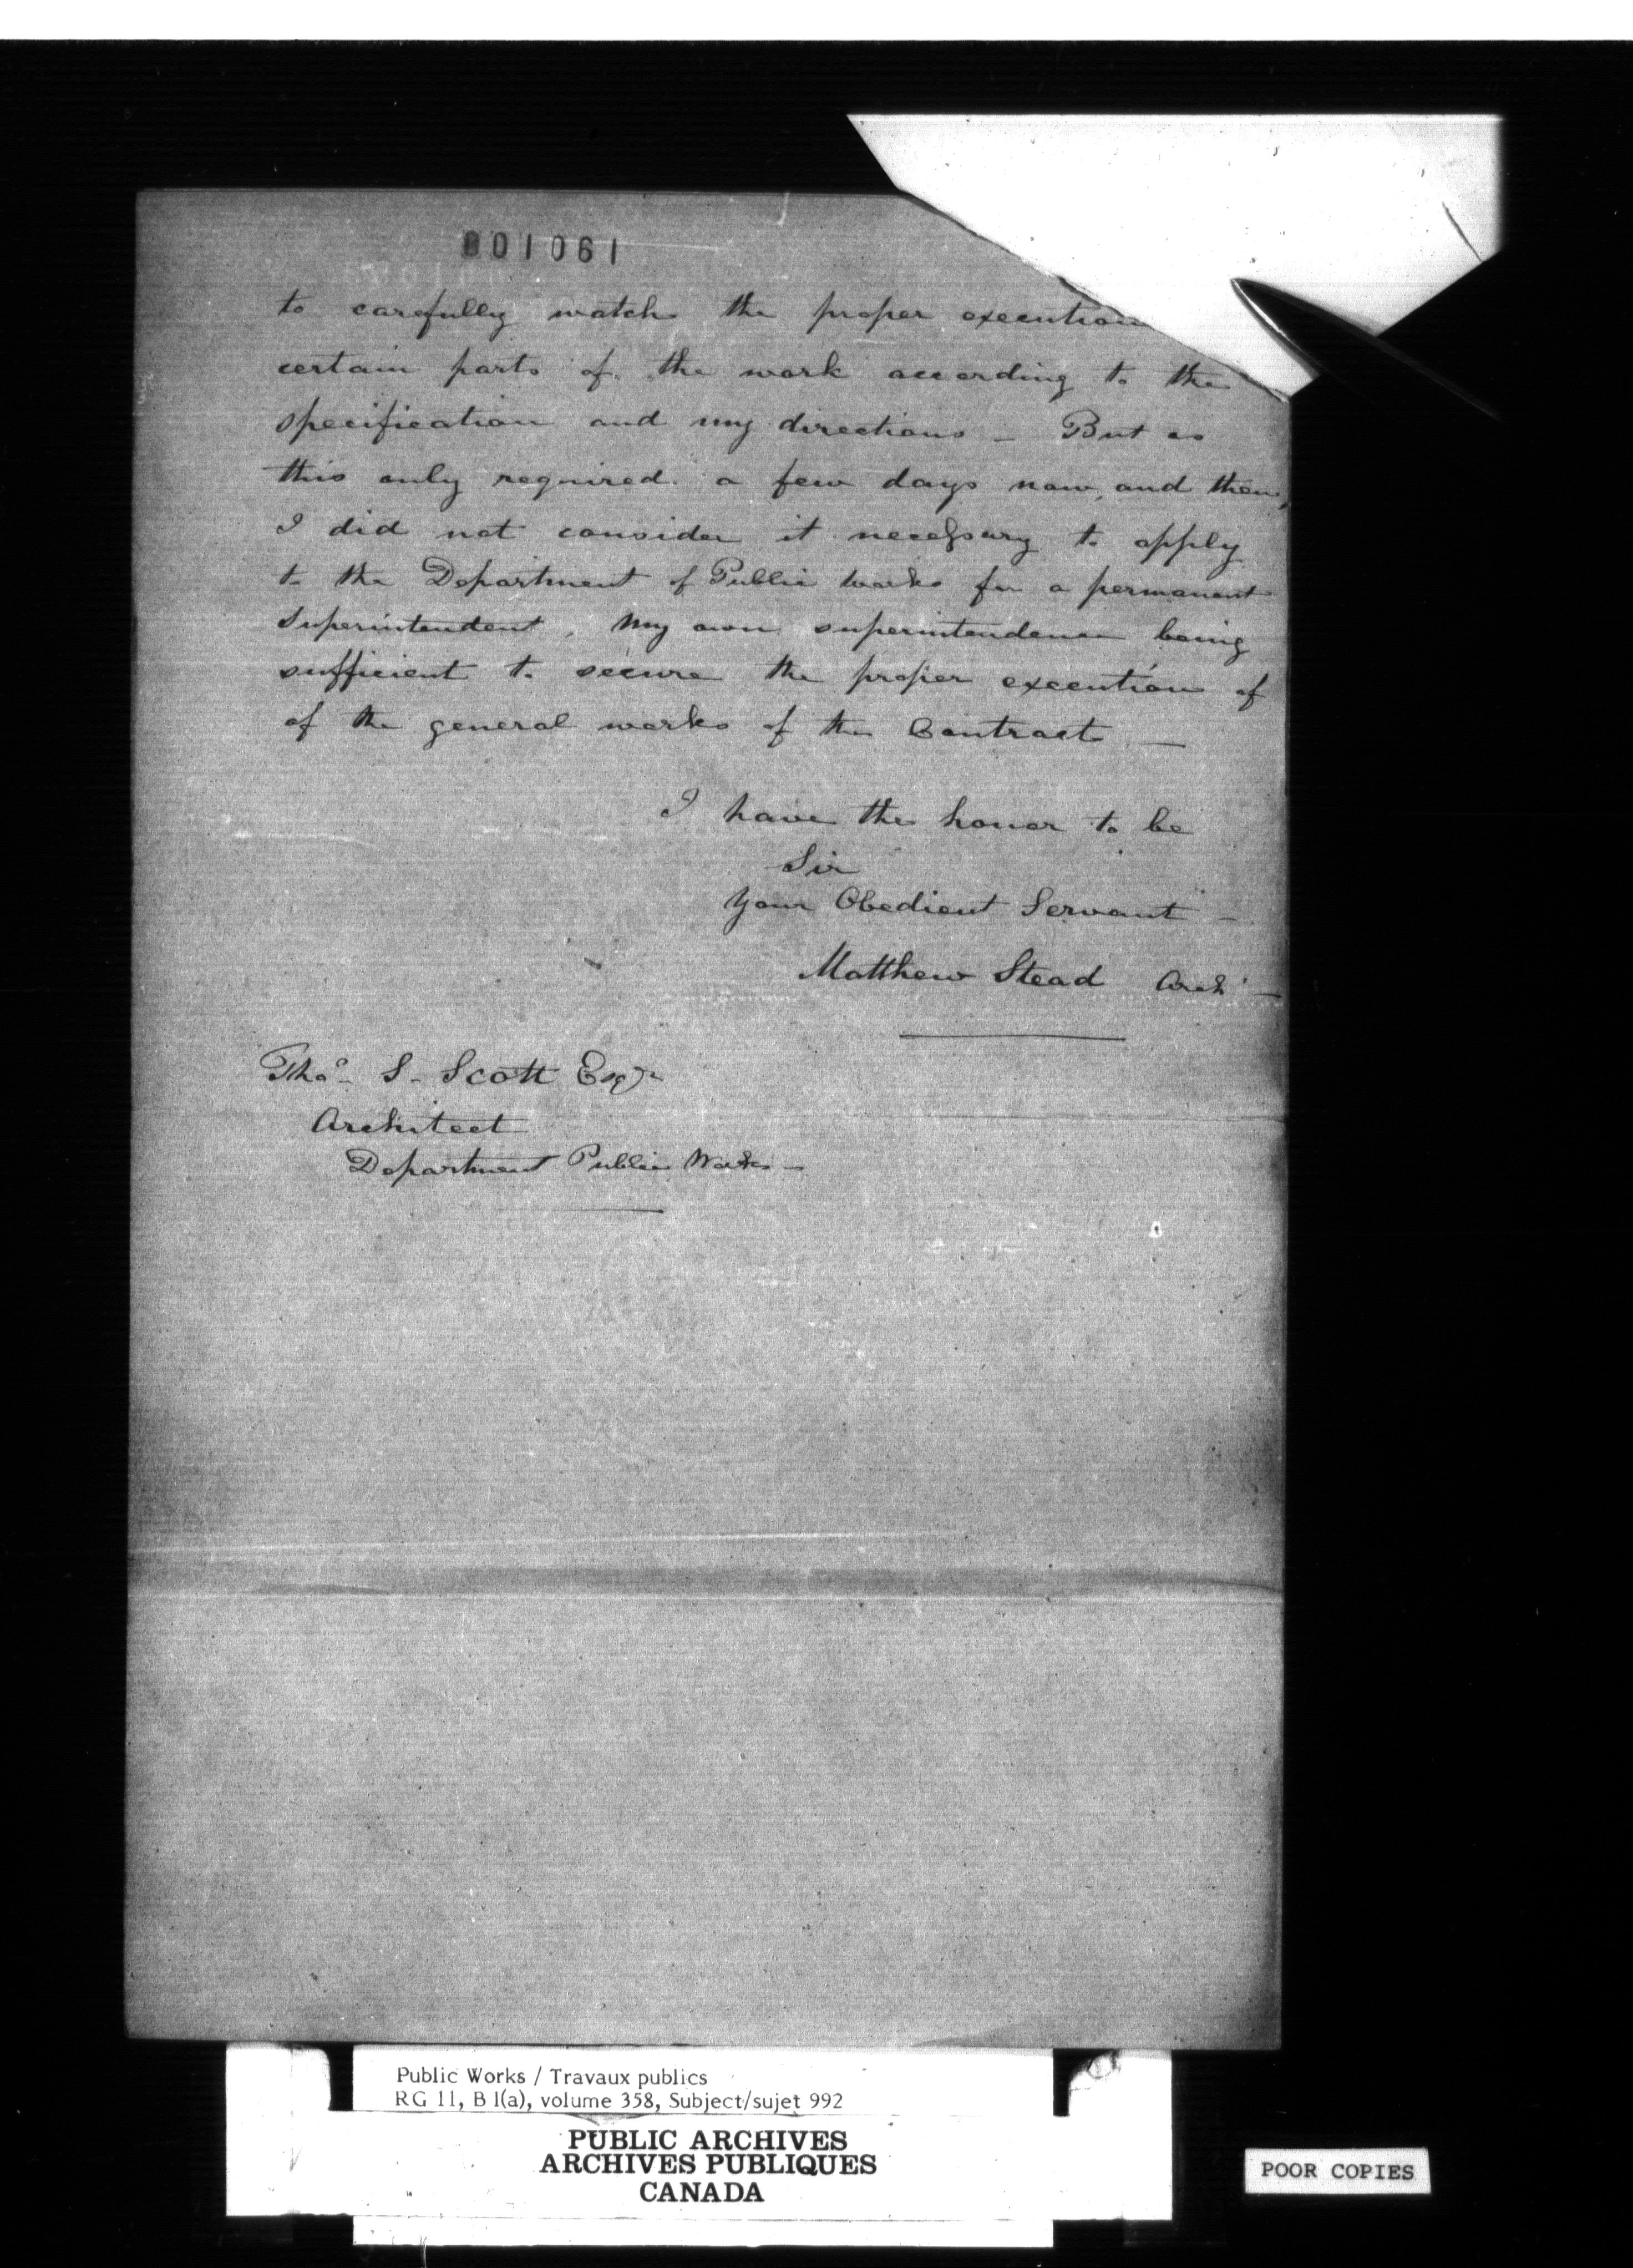 001061
to carefully watch the proper execution
certain parts of the work according to the
specification and my directions – But as
this only required a few days now, and then,
I did not consider it necessary to apply
to the Department of Public Works for a permanent
Superintendent, My own superintendence being
sufficient to secure the proper execution of
of the general works of the Contract –
I have the honor to be
Sir
Your Obedient Servant –
Matthew Stead Arch^t –
Tho^s – S – Scott Esq^r
Architect
Department Public Works –
Public Works / Travaux publics
RG 11, B 1(a), volume 358, Subject/sujet 992
PUBLIC ARCHIVES
ARCHIVES PUBLIQUES
CANADA
POOR COPIES